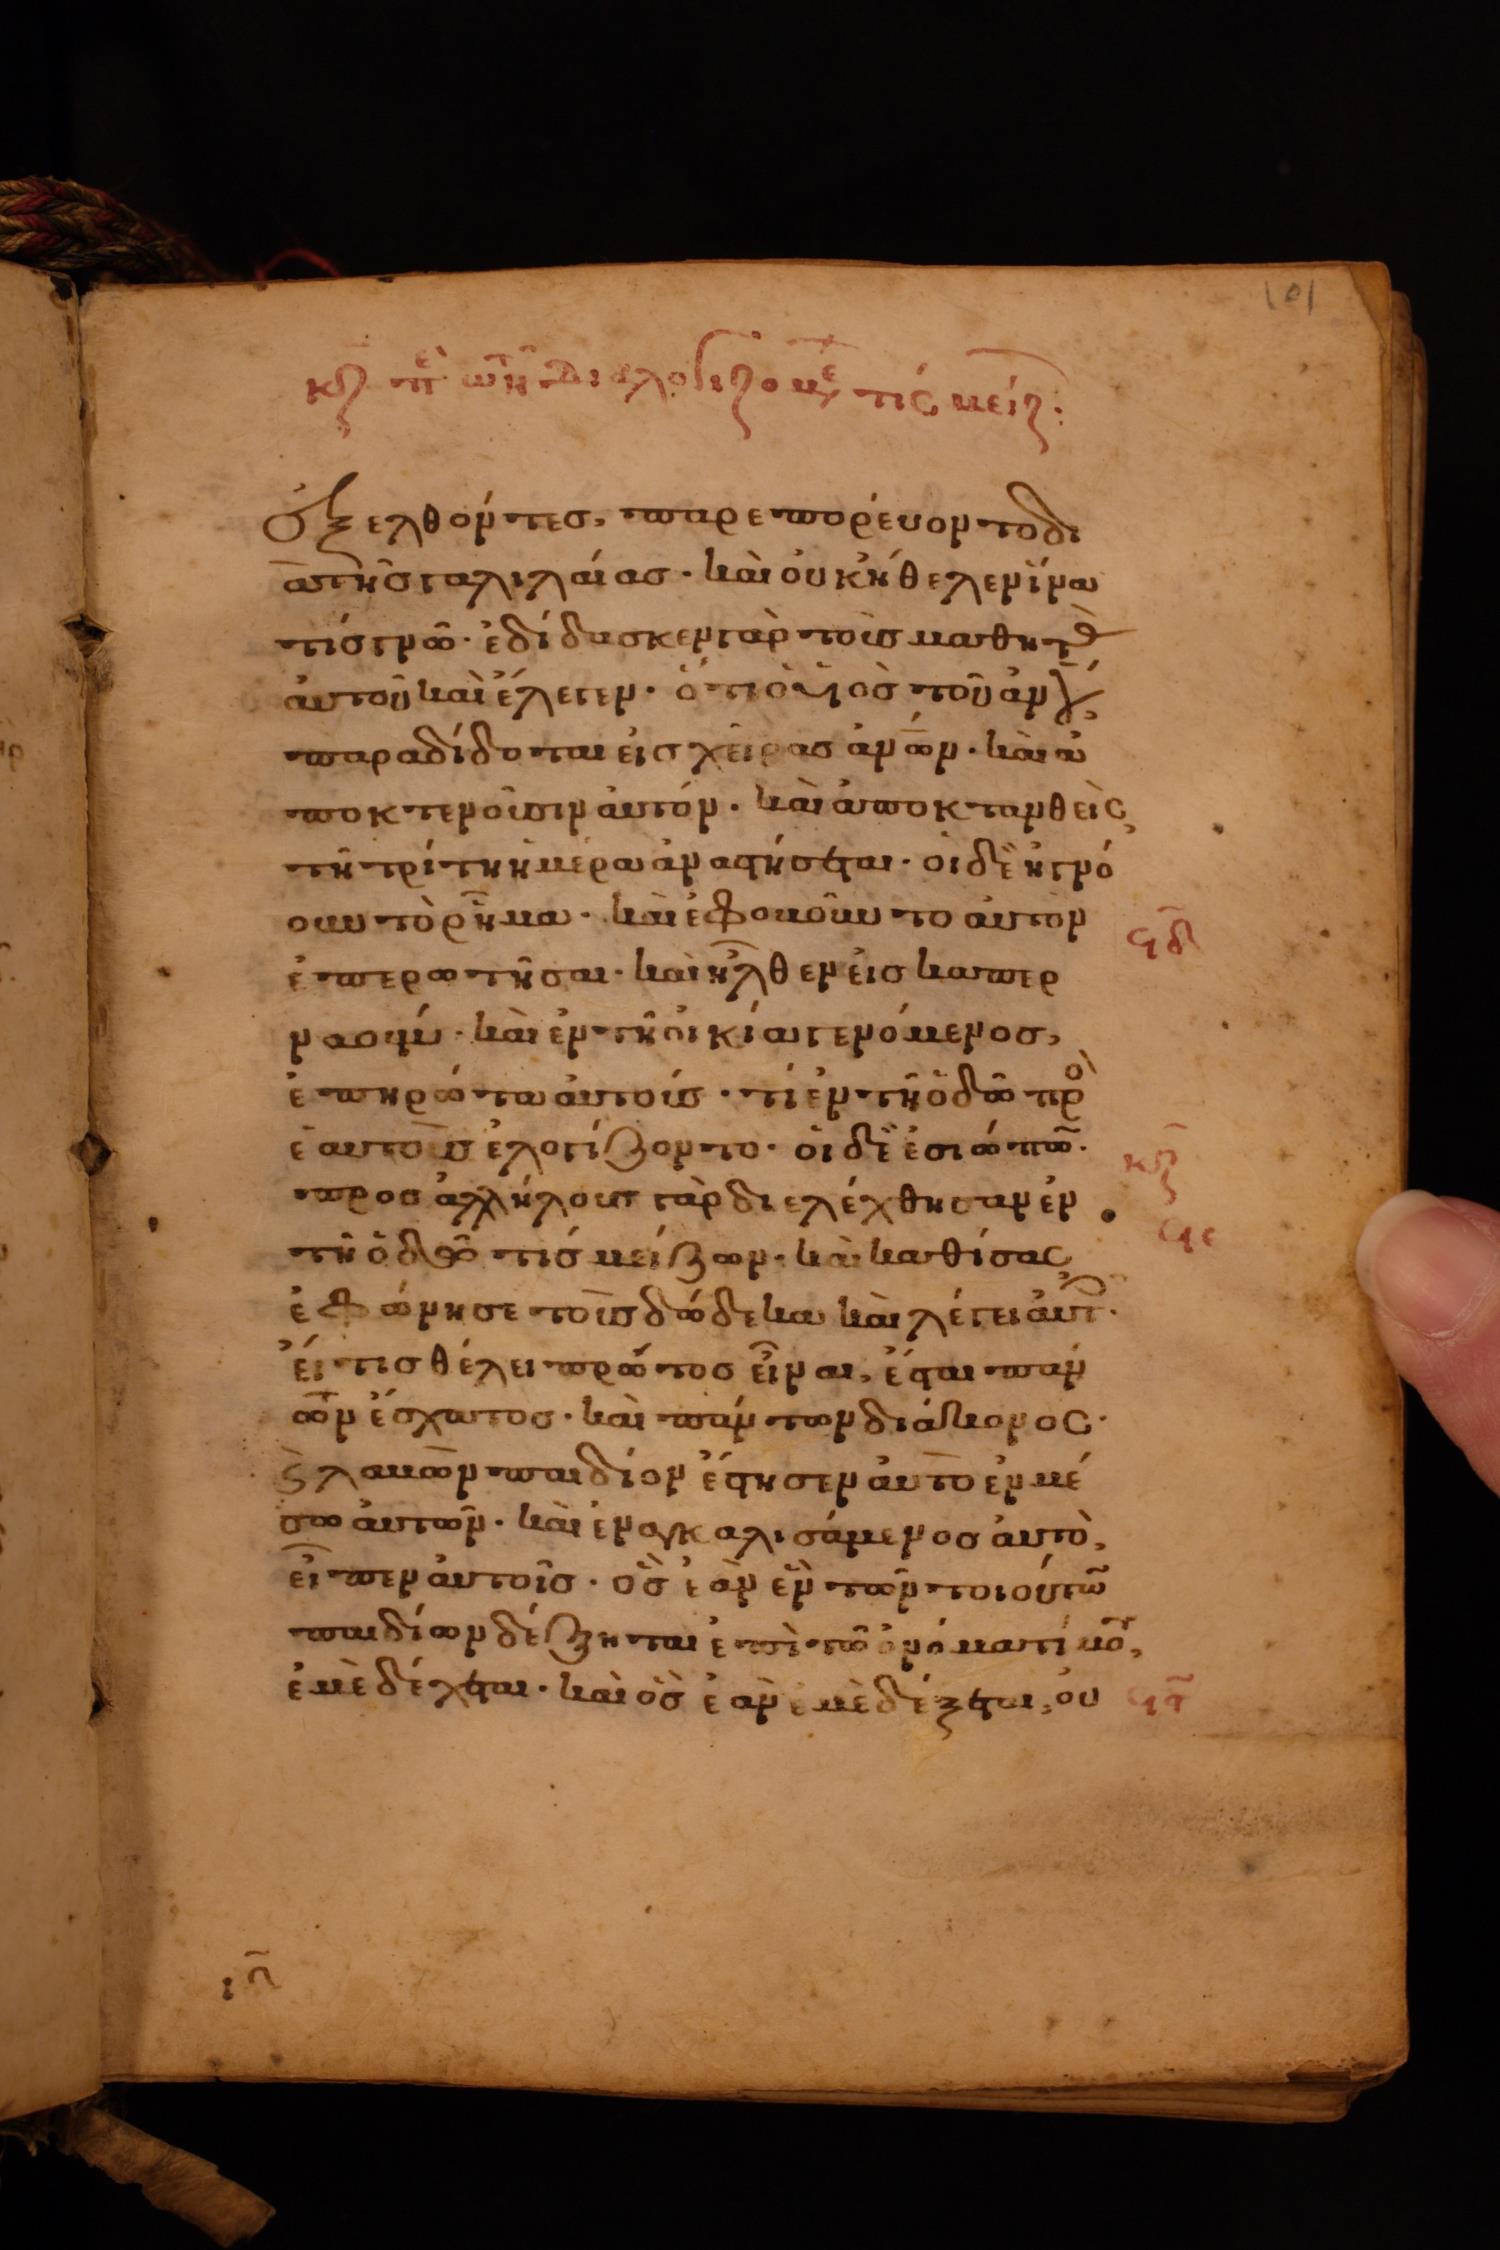 101
κζ πε τῶν διαλογιζομε τίς μείζ:
ἐξελθόντες, παρεπορεύοντο δι
ὰ τῆς γαλιλαίας· καὶ οὐκ ἤθελεν ἵνα
τίς γνῶ· ἐδίδασκεν γὰρ τοὺς μαθητὰς
ἀυτοῦ καὶ ἔλεγεν· ὅτι ὁ υἱὸς τοῦ ἀν
παραδίδοται εἰς χεῖρας ἀνῶν· καὶ ἀ
ποκτενοῦσιν ἀυτόν· καὶ ἀποκτανθεὶς,
τῆ τρίτη ἡμέρα ἀναστήσεται· οἱ δὲ ἠγνό
ουν τὸ ῥῆμα· καὶ ἐφοβοῦντο ἀυτὸν
ἐπερωτῆσαι· καὶ ἦλθεν εἰς καπερ
ναούμ· καὶ ἐν τῆ οἰκία γενόμενος,
ἐπηρώτα ἀυτούς· τί ἐν τῆ ὁδῶ πρὸ
ἑαυτοὺς ἐλογίζοντο· οἱ δὲ ἐσιώπων·
προς ἀλλήλους γὰρ διελέχθησαν ἐν
τῆ ὁδῶ τίς μείζων· καὶ καθίσας
ἐφώνησε τοὺς δώδεκα καὶ λέγει ἀυτ·
εἴ τις θέλει πρῶτος εἶναι, ἔσται πάν
των ἔσχατος· καὶ πάντων διάκονος·
ϗ λαβὼν παιδίον ἔστησεν ἀυτὸ ἐν μέ
σω ἀυτῶν· καὶ ἐναγκαλισάμενος ἀυτὸ,
εἶπεν ἀυτοῖς· ὃς ἐὰν ἓν τῶν τοιούτων
παιδίων δέξηται ἐπὶ τῶ ὀνόματί μου,
ἐμὲ δέχεται· καὶ ὃς ἐὰν ἐμὲ δέξεται, ου
ϟδ
κζ
ϟε
ϟϛ
ιγ